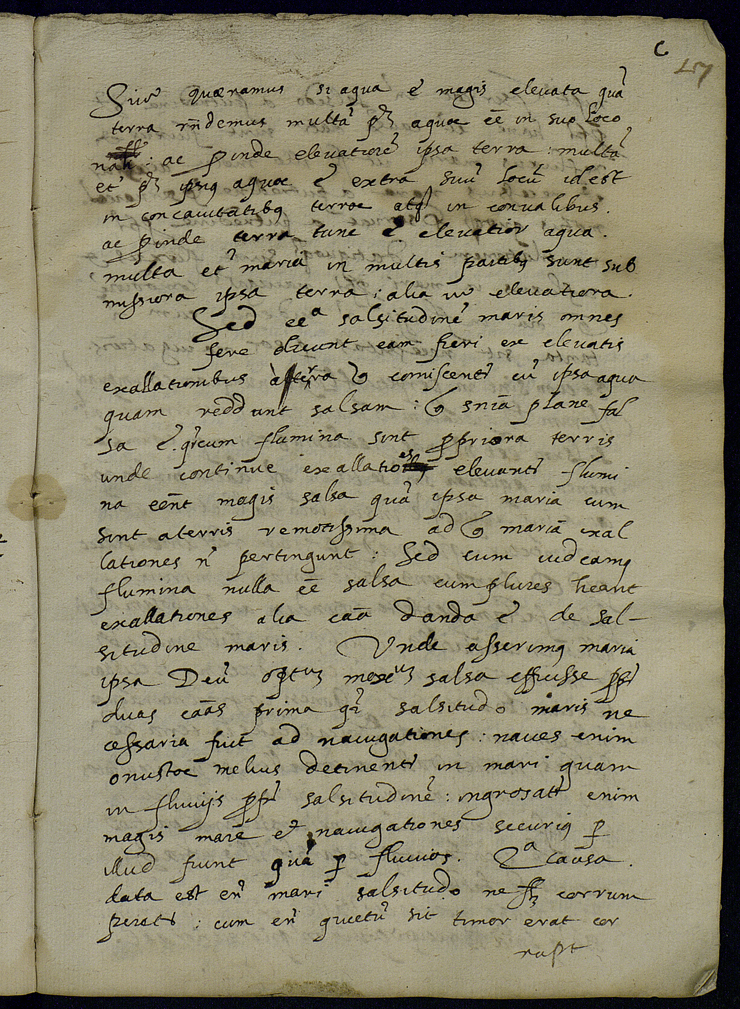 C
157
Sive quæramus si aqua ē magis elevata quā
terra rñdemus multā aquae eē in suo loco
ac pinde elevatiorē ipsa terra : multā
et ipsiq aquae ē extrā suū locū id est
in concavitatibq terrae atq in convalibus.
ac pinde terra tunc ē elevatior aqua.
multa et maria in multis partibq sunt sub
missiora ipsa terra; alia elevatiora.
Sed salsitudinē maris omnes
fere dicunt eam fieri ex elevatis
exallationibus a terra & comiscentr cū ipsa aqua
quam reddunt salsam : & sñia plane fal
sa ē. cum flumina sint ppriora terris
unde continue exallationes elevantr flumi
na eēnt magis salsa quā ipsa maria cum
sint a terris remotissima ad & mariā exal
lationes ñ pertingunt : Sed cum videamq
flumina nulla eē salsa cum plures heant
exallationes alia caā danda ē de sal-
situdine maris. Unde asserimq maria
ipsa Deū salsa effecisse
duas caās prima qr salsitudo maris ne
cessaria fuit ad navigationes : naves enim
onustae melius detinentr in mari quam
in fluvijs salsitudinē : ingrosatr enim
magis mare et navigationes securiq p
illud fiunt quā p fluvios. 2ª causa.
data est enī mari salsitudo ne corrum
peratr : cum enī quietū sit timor erat cor
rupt